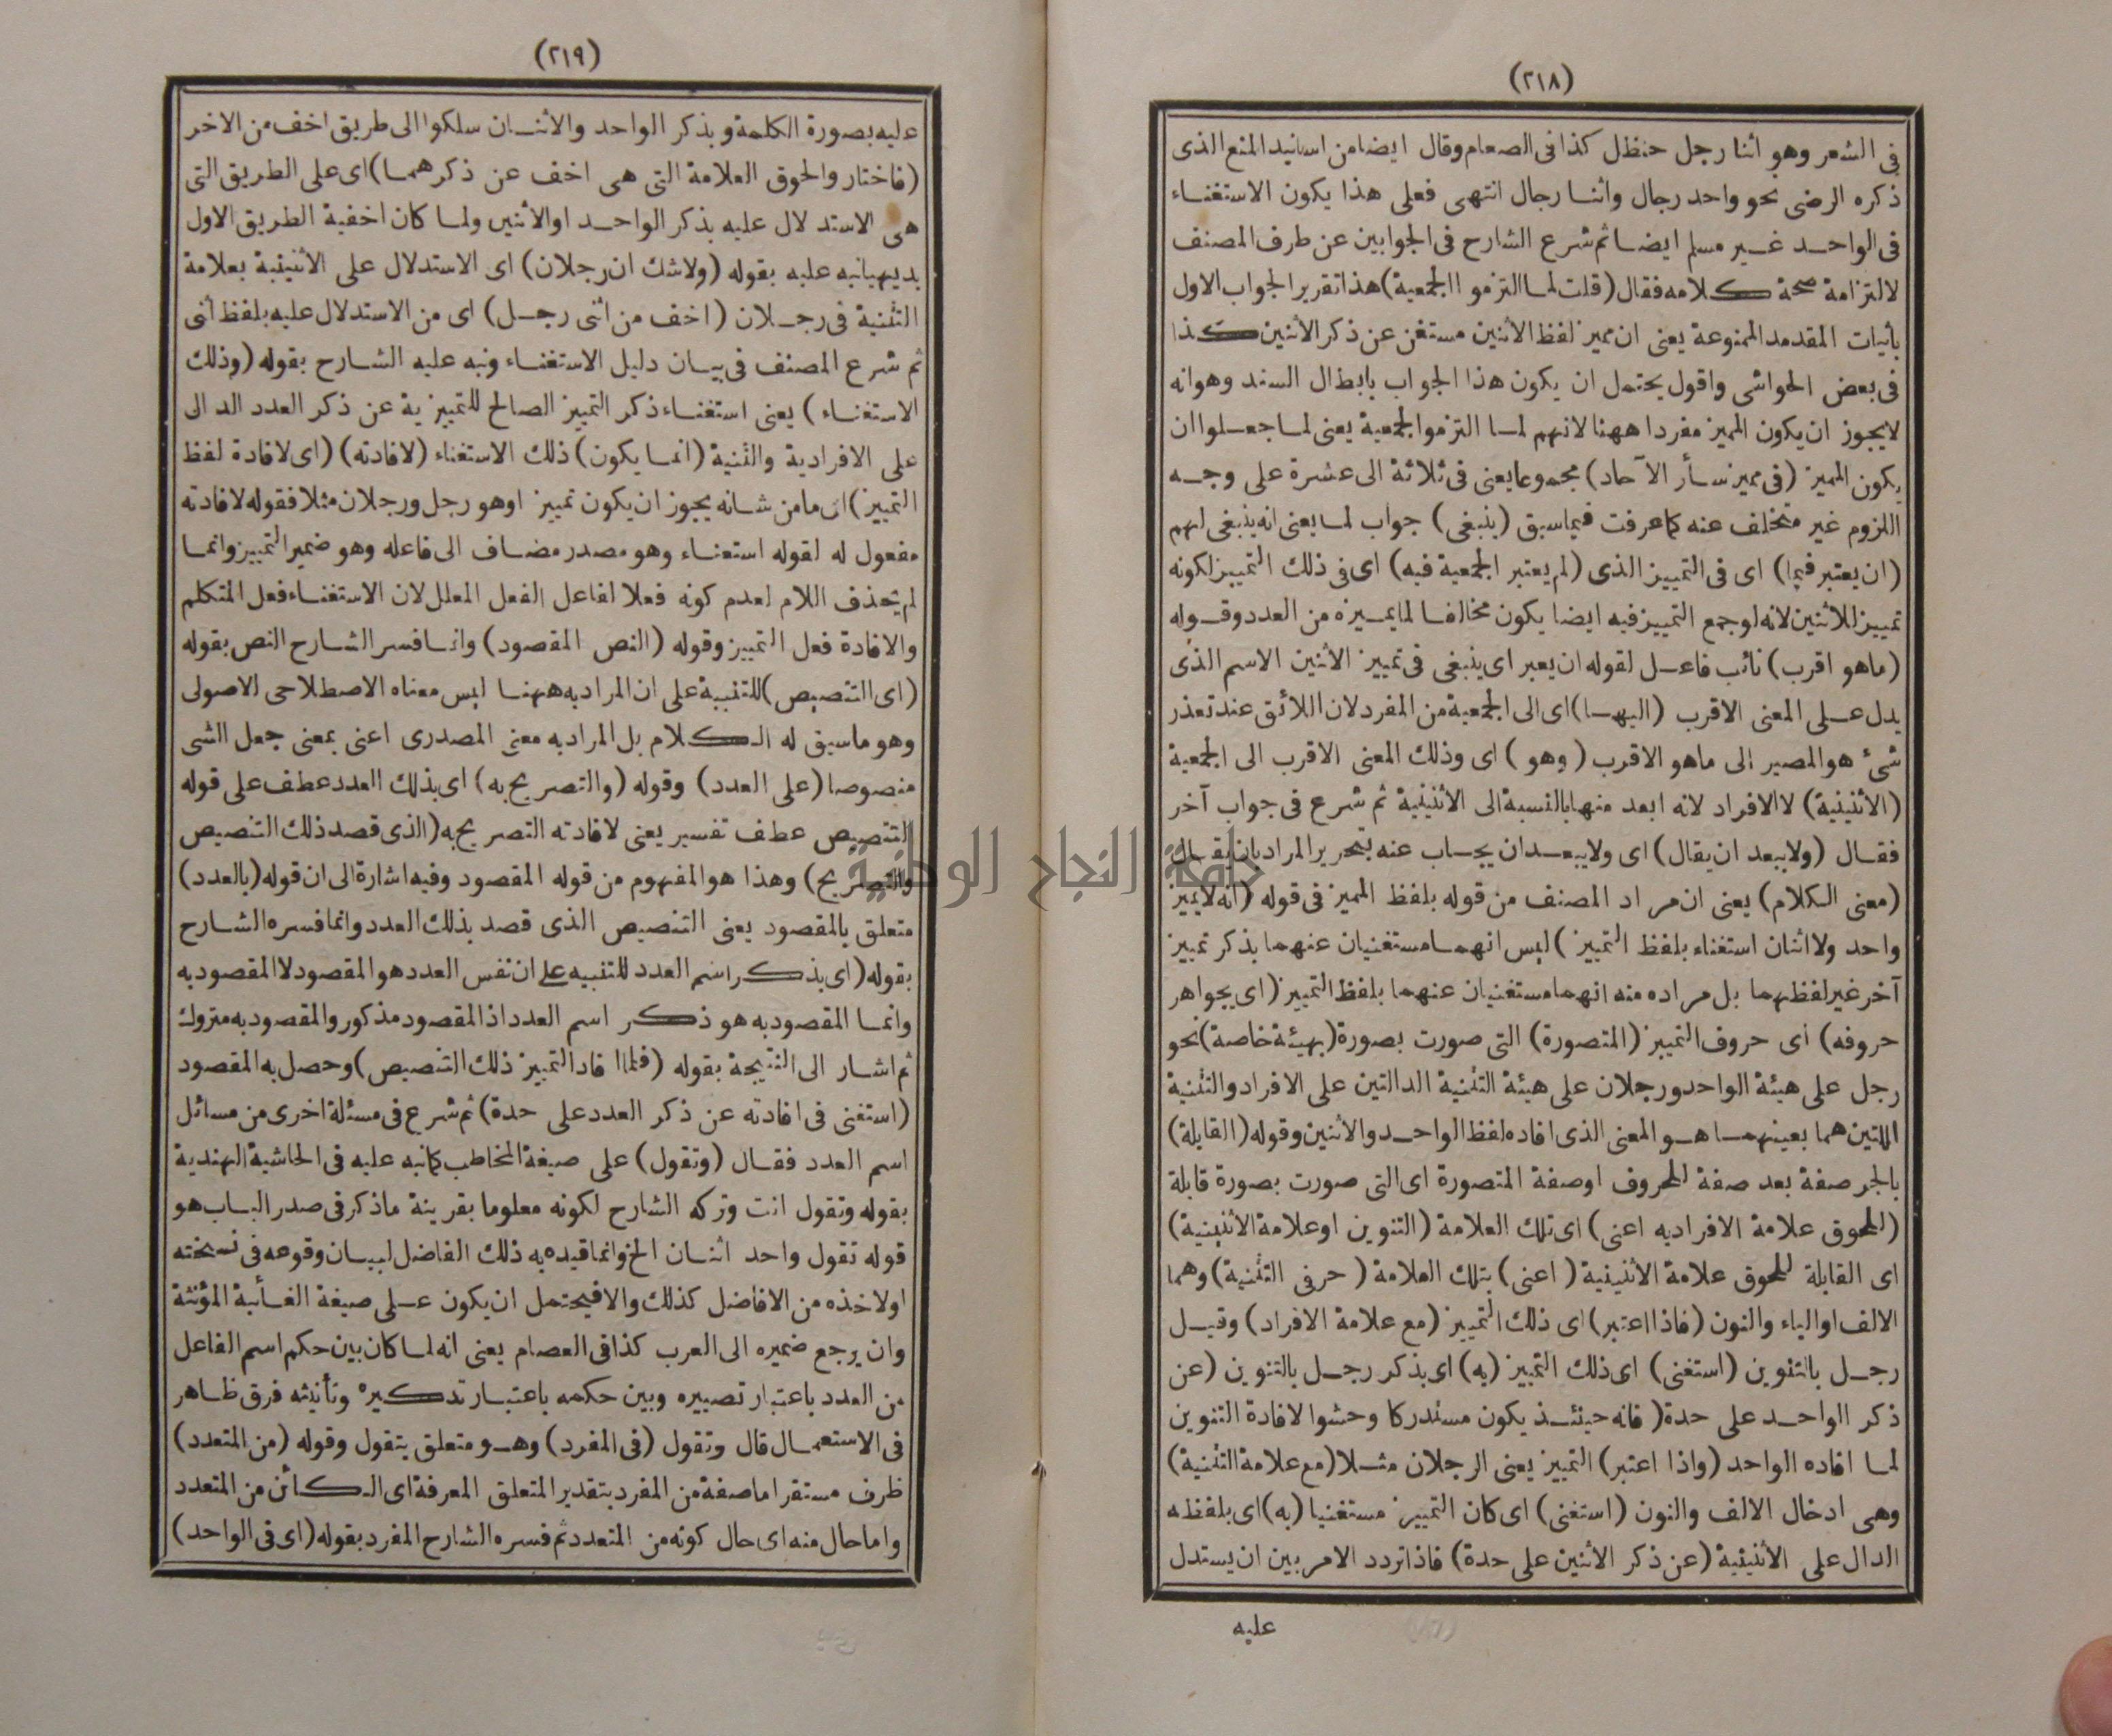 (٢١٨)
فى الشعر وهو اثنا رجل حنظل كذا فى الصعام وقال ايضا من اسانيد المنع الذى
ذكره الرضى نحو واحد رجال واثنا رجال انتهى فعلى هذا يكون الاستغناء
فى الواحد غير مسلم ايضا ثم شرع الشارح فى الجوابين عن طرف المصنف
لالتزامة صحة كلامه فقال (قلت لما التزموا الجمعية) هذا تقرير الجواب الاول
بأثبات المقدمد الممنوعة يعنى ان مميز لفظ الأثنين مستغن عن ذكر الأثنين كذا
فى بعض الحواشى واقول يحتمل ان يكون هذا الجواب بابطال السند وهو انه
لايجوز ان يكون المميز مفردا ههنا لانهم لما التزموا الجمعية يعنى لما جعلوا ان
يكون المميز (فى مميز سأر الآحاد) مجموعا يعنى فى ثلاثة الى عشرة على وجه
اللزوم غير متخلف عنه كما عرفت فيما سبق (ينبغى) جواب لما يعنى انه ينبغى لهم
(ان يعتبر فيما) اى فى التمييز الذى (لم يعتبر الجمعية فيه) اى فى ذلك التمييز لكونه
تمييز للاثنين لانه لو جمع التمييز فيه ايضا يكون مخالفا لما يميزه من العدد وقوله
(ماهو اقرب) نائب فاعل لقوله ان يعبر اى ينبغى فى تمييز الأثنين الاسم الذى
يدل على المعنى الاقرب (اليها) اى الى الجمعية من المفرد لان اللائق عند تعذر
شىء هو المصير الى ماهو الاقرب (وهو) اى وذلك المعنى الاقرب الى الجمعية
(الأثنينية) لا الافراد لانه ابعد منها بالنسبة الى الأثنينية ثم شرع فى جواب آخر
فقال (ولايبعد ان يقال) اى ولايبعد ان يجاب عنه بتحرير المراد بان يقال
(معنى الكلام) يعنى ان مراد المصنف من قوله بلفظ المميز فى قوله (انه لايميز
واحد ولا اثنان استغناء بلفظ التمييز) ليس انهما مستغنيان عنهما بذكر تمييز
آخر غير لفظهما بل مراده منه انهما مستغنيان عنهما بلفظ التمييز (اى بجواهر
حروفه) اى حروف التمييز (المتصورة) التى صورت بصورة (بهيئة خاصة) نحو
رجل على هيئة الواحد ورجلان على هيئة التثنية الدالتين على الافراد والتثنية
اللتين هما بعينهما هو المعنى الذى افاده لفظ الواحد والأثنين وقوله (القابلة)
بالجر صفة بعد صفة للحروف او صفة المتصورة اى التى صورت بصورة قابلة
(للحوق علامة الافراد به اعنى) اى تلك العلامة (التنوين او علامة الاثنينية)
اى القابلة للحوق علامة الأثنينية (اعنى) بتلك العلامة (حرفى التثنية) وهما
الالف او الياء والنون (فاذا اعتبر) اى ذلك التمييز (مع علامة الافراد) وقيل
رجل بالتنوين (استغنى) اى ذلك التمييز (به) اى بذكر رجل بالتنوين (عن
ذكر الواحد على حدة( فانه حينئذ يكون مستدركا وحشوا لافادة التنوين
لما افاده الواحد (واذا اعتبر) التمييز يعنى الرجلان مثلا (مع علامة التثنية)
وهى ادخال الالف والنون (استغنى) اى كان التمييز مستغنيا (به) اى بلفظه
الدال على الأثنينية (عن ذكر الأثنين على حدة) فاذا تردد الامر بين ان يستدل
عليه
(٢١٩)
عليه بصورة الكلمة وبذكر الواحد والأثنان سلكوا الى طريق اخف من الاخر
(فاختاروا لحوق العلامة التى هى اخف عن ذكرهما) اى على الطريق التى
هى الاستدلال عليه بذكر الواحد او الأثنين ولما كان اخفية الطريق الاول
بديهيا نبه عليه بقوله (ولاشك ان رجلان) اى الاستدلال على الأثنينية بعلامة
التثنية فى رجلان (اخف من اثنى رجل) اى من الاستدلال عليه بلفظ أثنى
ثم شرع المصنف فى بيان دليل الاستغناء ونبه عليه الشارح بقوله (وذلك
الاستغناء) يعنى استغناء ذكر التمييز الصالح للتمييزية عن ذكر العدد الدالى
على الافرادية والثنية (انما يكون) ذلك الاستغناء (لافادته) (اى لافادة لفظ
التمييز) اى ما من شانه يجوز ان يكون تمييز ا وهو رجل ورجلان مثلا فقوله لافادته
مفعول له لقوله استغناء وهو مصدر مضاف الى فاعله وهو ضمير التمييز وانما
لم يحذف اللام لعدم كونه فعلا لفاعل الفعل المعلل لان الاستغناء فعل المتكلم
والافادة فعل التمييز وقوله (النص المقصود) وانما فسر الشارح النص بقوله
(اى التنصيص) للتنبيه على ان المراد به ههنا ليس معناه الاصطلاحى الاصولى
وهو ماسيق له الكلام بل المراد به معنى المصدرى اعنى بمعنى جعل الشى
منصوصا (على العدد) وقوله (والتصريح به) اى بذلك العدد عطف على قوله
التنصيص عطف تفسير يعنى لافادته التصريح به (الذى قصد ذلك التنصيص
والتصريح) وهذا هو المفهوم من قوله المقصود وفيه اشارة الى ان قوله (بالعدد)
متعلق بالمقصود يعنى التنصيص الذى قصد بذلك العدد وانما فسره الشارح
بقوله (اى بذكر اسم العدد للتنبيه على ان نفس العدد هو المقصود لا المقصود به
وانما المقصود به هو ذكر اسم العدد اذ المقصود مذكور والمقصود به متروك
ثم اشار الى النتيجة بقوله (فلما افاد التمييز ذلك التنصيص) وحصل به المقصود
(استغنى فى افادته عن ذكر العدد على حدة) ثم شرع فى مسئلة اخرى من مسائل
اسم العدد فقال (وتقول) على صيغة المخاطب كما نبه عليه فى الحاشية الهندية
بقوله وتقول انت وتركه الشارح لكونه معلوما بقرينة ماذكر فى صدر الباب هو
قوله تقول واحد اثنان الخ وانما قيده به ذلك الفاضل لبيان وقوعه فى نسخته
اولاخذه من الافاضل كذلك والا فيحتمل ان يكون على صيغة الغأبة المؤنثة
وان يرجع ضميره الى العرب كذا فى العصام يعنى انه لما كان بين حكم اسم الفاعل
من العدد باعتبار تصييره وبين حكمه باعتبار تذكيره وتأنيثه فرق ظاهر
فى الاستعمال قال وتقول (فى المفرد) وهو متعلق بتقول وقوله (من المتعدد)
ظرف مستقر اما صفة من المفرد بتقدير المتعلق المعرفة اى الكأن من المتعدد
واما حال منه اى حال كونه من المتعدد ثم فسره الشارح المفرد بقوله (اى فى الواحد)
جامعة النجاح الوطنية